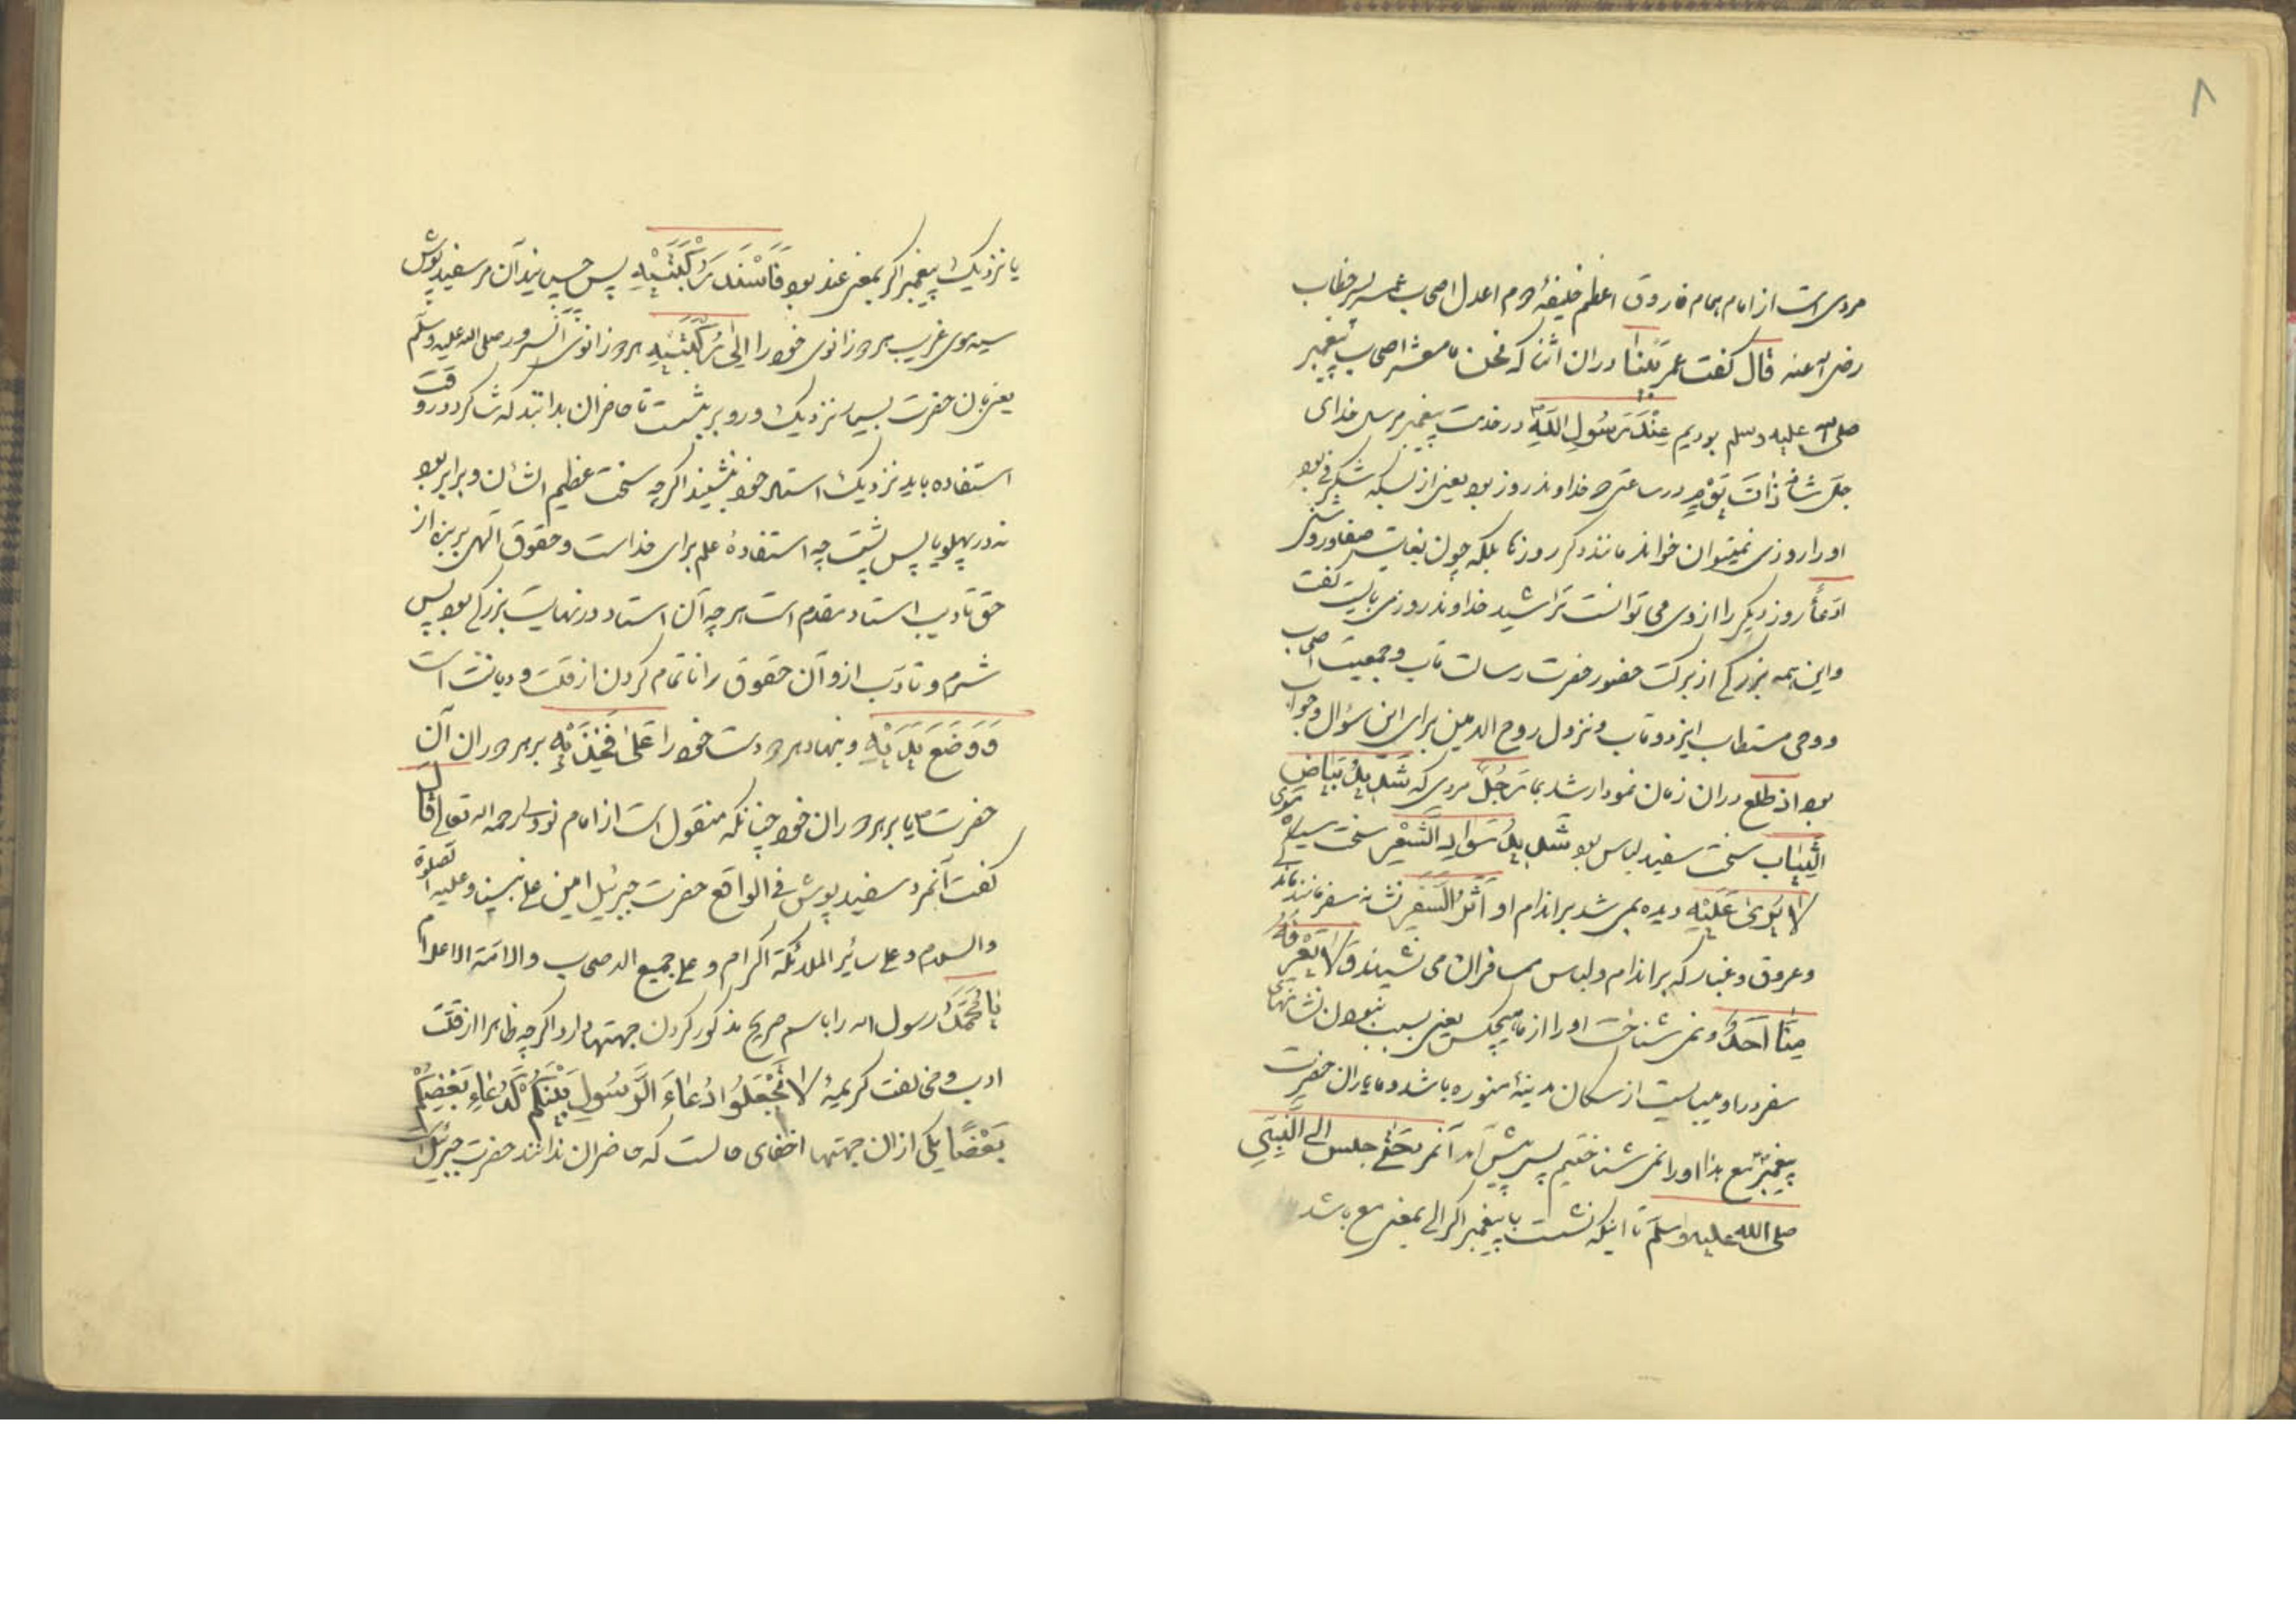 ۸
مرویست از امام همام فاروق اعظم خلیفهٔ دوم اعدل اصحاب عمر پسر خطاب
رضی الله عنه قال گفت عمر بینا دران اثنا که نحن ما معشر اصحاب پیغمبر
صلی الله علیه وسلم بودیم عِنْدَ رَسُولِ اللّٰهِ در خدمت پیغمبر مرسل خدای
جل شانه ذاتَ یَوْمٍ در ساعتی خداوند روز بود یعنی از بسکه شگرفی بود
او را روزی نمیتوان خواند مانند دگر روزها بلکه چون بغایت صفا و روشنی
ادعاً روز دیگر را از وی می توانست تراشید خداوند روزی بایست گفت
و این همه بزرگی از برکت حضور حضرت رسالت مآب و جمعیت اصحاب
و وحی مستطاب ایزد وهاب و نزول روح الامین برای این سؤال و جواب
بود اذ طلع دران زمان نمودار شد بما رَجُلٌ مردی که شَدِیدُ بَیَاضِ
الثِّیَابِ سخت سفید لباس بود شَدِیدُ سَوَادِ الشَّعْرِ سخت سیاه موی
لا یُرَیٰ عَلَیْهِ دیده نمی شد بر اندام او اَثَرُ السَّفَرِ نشانهٔ سفر مانند ماندگی
و عروق و غبار که بر اندام و لباس مسافران می نشیند وَلا یَعْرِفُهُ
مِنَّا اَحَدٌ و نمی شناخت او را از ما هیچکس یعنی بسبب نبودن نشانهای
سفر در او میبایست از سکان مدینهٔ منوره باشد و ما یاران حضرت
پیغمبر مع هذا او را نمی شناختیم پس پیش آمد آنمرد حَتّٰی جلس الی النَّبِیِّ
صلی الله علیه وسلم تا اینکه نشست با پیغمبر اگر الی بمعنی مع باشد
یا نزدیک پیغمبر اگر بمعنی عند بود فَاَسْنَدَ رُکْبَتَیْهِ پس چسپانید آن مرد سفید پوش
سیه موی غریب هر دو زانوی خود را اِلیٰ رُکْبَتَیْهِ بهر دو زانوی آنسرور صلی الله علیه وسلم
یعنی بان حضرت بسیار نزدیک و روبرو بنشست تا حاضران بدانند که شاگرد در وقت
استفاده باید نزدیک استاد خود بنشیند اگرچه سخت عظیم الشان و برابر بود
نه در پهلو یا پس پشت چه استفادهٔ علم برای خداست و حقوق الهی پریزه از
حق تادیب استاد مقدم است هر چه آن استاد در نهایت بزرگی بود پس
شرم و تادب ازو آن حقوق را ناتمام کردن از قلت دیانت است
وَوَضَعَ یَدَیْهِ و بنهاد هر دو دست خود را عَلیٰ فَخِذَیْهِ بر هر دو ران آن
حضرت یا بر هر دو ران خود چنانکه منقول است از امام نووی رحمه الله تعالی قال
گفت آنمرد سفید پوش فی الواقع حضرت جبرئیل امین علی نبینا و علیه الصلوة
والسلام و علی سائر الملائکة الکرام و علی جمیع الاصحاب والائمة الاعلام
یَا مُحَمَّدُ رسول الله را باسم صریح مذکور کردن جهتها دارد اگرچه ظاهرا از قلت
ادب و مخالفت کریمهٔ لا تَجْعَلُوا دُعَاءَ الرَّسُولِ بَیْنَکُمْ کَدُعَاءِ بَعْضِکُمْ
بَعْضًا یکی ازان جهتها اخفای حالست که حاضران ندانند حضرت جبرئیل است